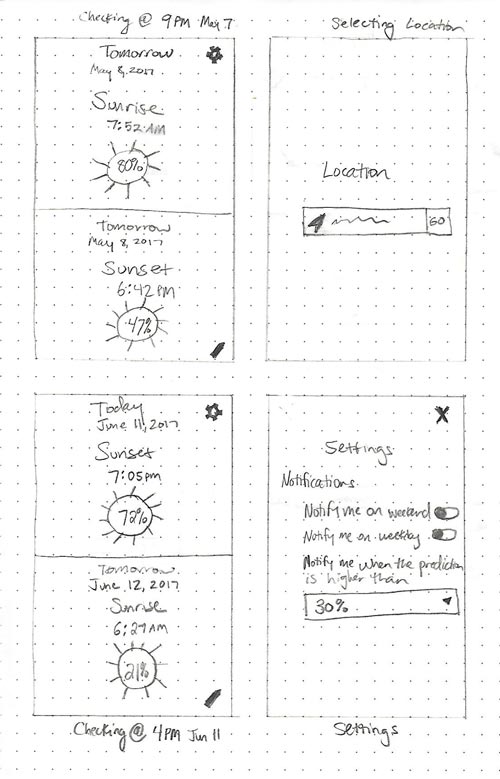 Checking @ 9PM May 7
Tomorrow
May 8, 2017
Sunrise
7:52 AM
80%
Tomorrow
May 8, 2017
Sunset
6:42 PM
47%
Selecting Location
Location
GO
Today
June 11, 2017
Sunset
7:05pm
72%
Tomorrow
June 12, 2017
Sunrise
6:27AM
21%
Checking @ 4PM Jun 11
X
Settings
Notifications
Notify me on weekend
Notify me on weekday
Notify me when the prediction
is higher than
30%
Settings